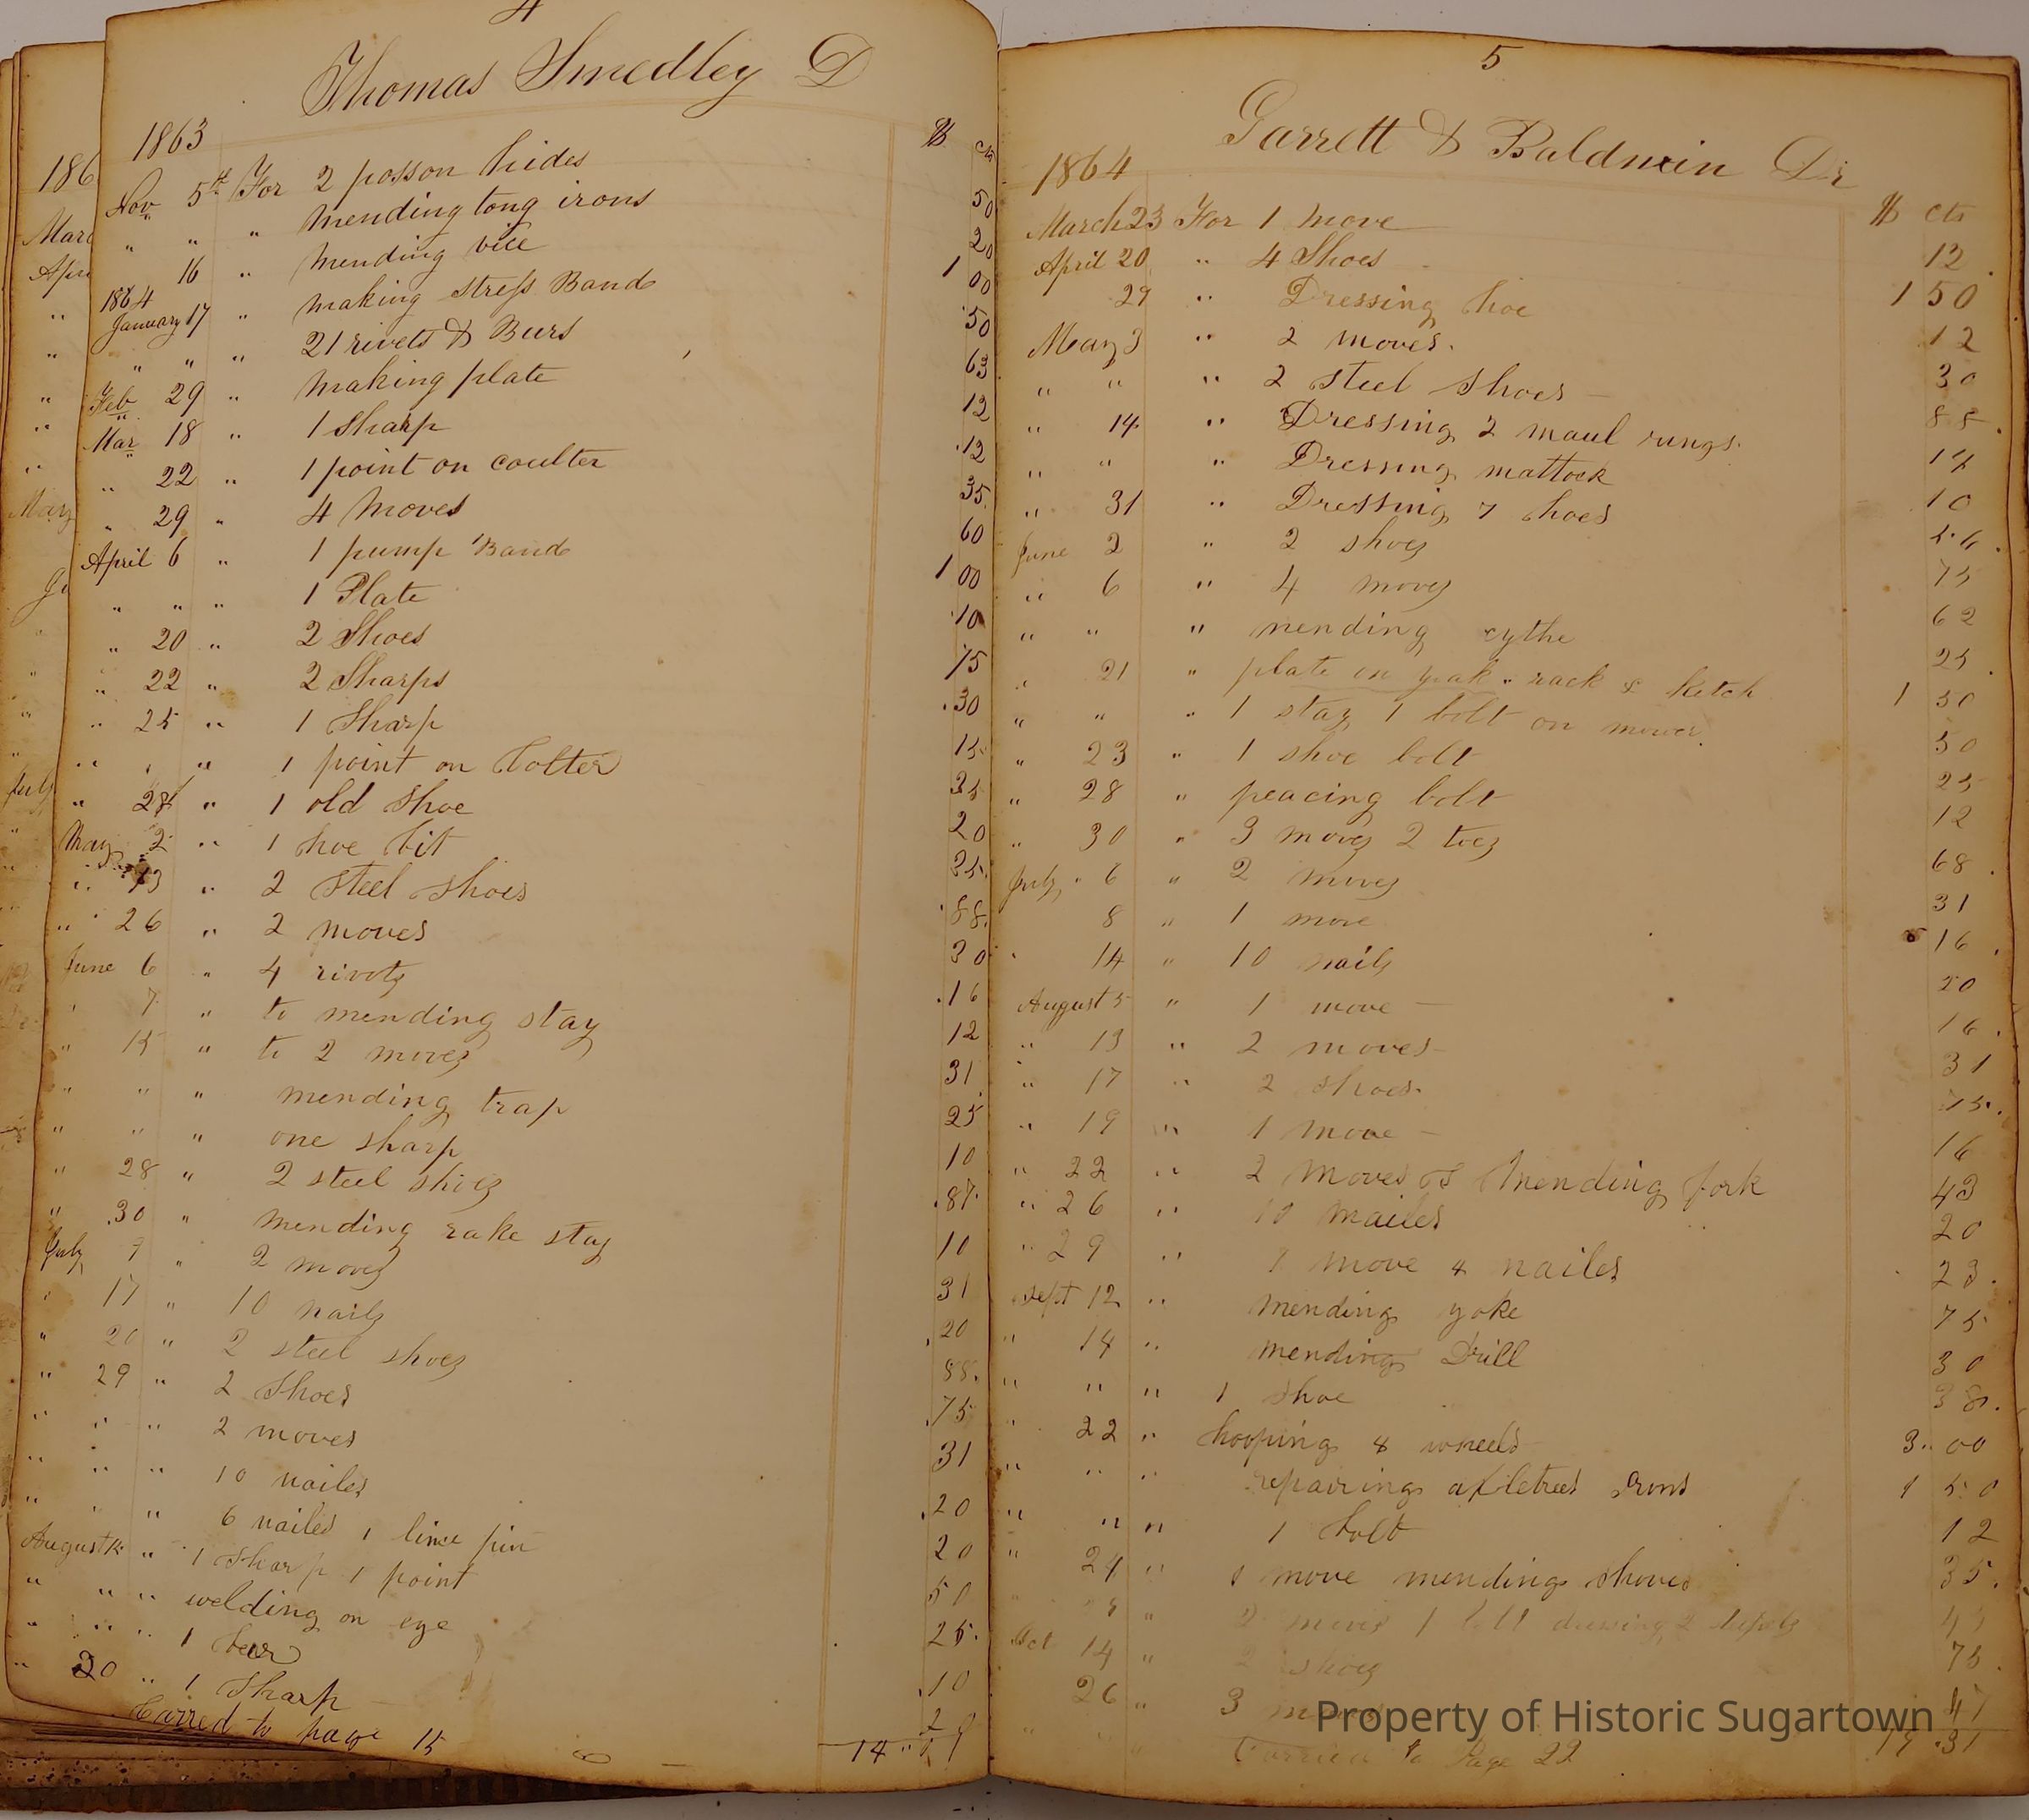 4
Thomas Smedley D
1863
$ cts
Nov 5th For 2 posson hides 50
" " " mending tong irons 20
16 " mending vice 1 00
1864
January 17 " making stress Band 50
" " " 21 rivets & Burs 63
Feb 29 " making plate 12
Mar 18 " 1 Sharp 12
" 22 " 1 point on coulter 35
" 29 " 4 Moves 60
April 6 " 1 pump Band 1 00
" " " 1 Plate 10
" 20 " 2 Shoes 75
" 22 " 2 Sharps 30
" 25 " 1 Sharp 15
" " " 1 point on Colter 35
" 28 " 1 old Shoe 20
May 2 " 1 hoe bit 25
" 13 " 2 steel shoes 88
" 26 " 2 moves 30
June 6 " 4 rivots 16
" 7 " to mending stay 12
" 15 " to 2 moves 31
" " " mending trap 25
" " " one sharp 10
" 28 " 2 steel shoes 87
" 30 " mending rake stay 10
July 9 " 2 moves 31
" 17 " 10 nails 20
" 20 " 2 steel shoes 88
" 29 " 2 Shoes 75
" " " 2 moves 31
" " " 10 nailes 20
" " " 6 nailes 1 line pin 20
August " 1 Sharp 1 point 50
" " " welding on eye 25
" " " 1 10
" 20 " 1 Sharp
Carred to page 15 14
5
Garrett & Baldwin Dr
1864
$ cts
March 23 For 1 move 12
April 20 " 4 Shoes 1 50
29 " Dressing hoe 12
May 3 " 2 moves 30
" " " 2 steel shoes 88
" 14 " Dressing 2 maul rings
" " " Dressing mattock 10
" 31 " Dressing 7 hoes
June 2 " 2 shoes 75
" 6 " 4 moves 62
" " " mending cythe 25
" 21 " plate on rack & ketch 1 50
" " " 1 stay 1 bolt on mower 50
" 23 " 1 shoe bolt 25
" 28 " peacing bolt 12
" 30 " 3 moves 2 toes 68
July 6 " 2 moves 31
8 " 1 move 16
" 14 " 10 nails 20
August 5 " 1 move 16
" 13 " 2 moves 31
" 17 " 2 shoes 75
" 19 " 1 move 16
" 22 " 2 moves & mending fork 43
" 26 " 10 nailes 20
" 29 " 1 move 4 nailes 23
Sept 12 " mending yoke 75
" 14 " mending Drill 30
" " " 1 shoe 38
" 22 " hooping 4 wheels 3 00
" " " repairing axletrees irons 1 50
" " " 1 bolt 12
" 24 " 1 move mending shovel 35
" " 2 moves 1 bolt dressing 2
Oct 14 " 2 shoes 75
26 " 3 47
Carried to Page 22 31
Property of Historic Sugartown